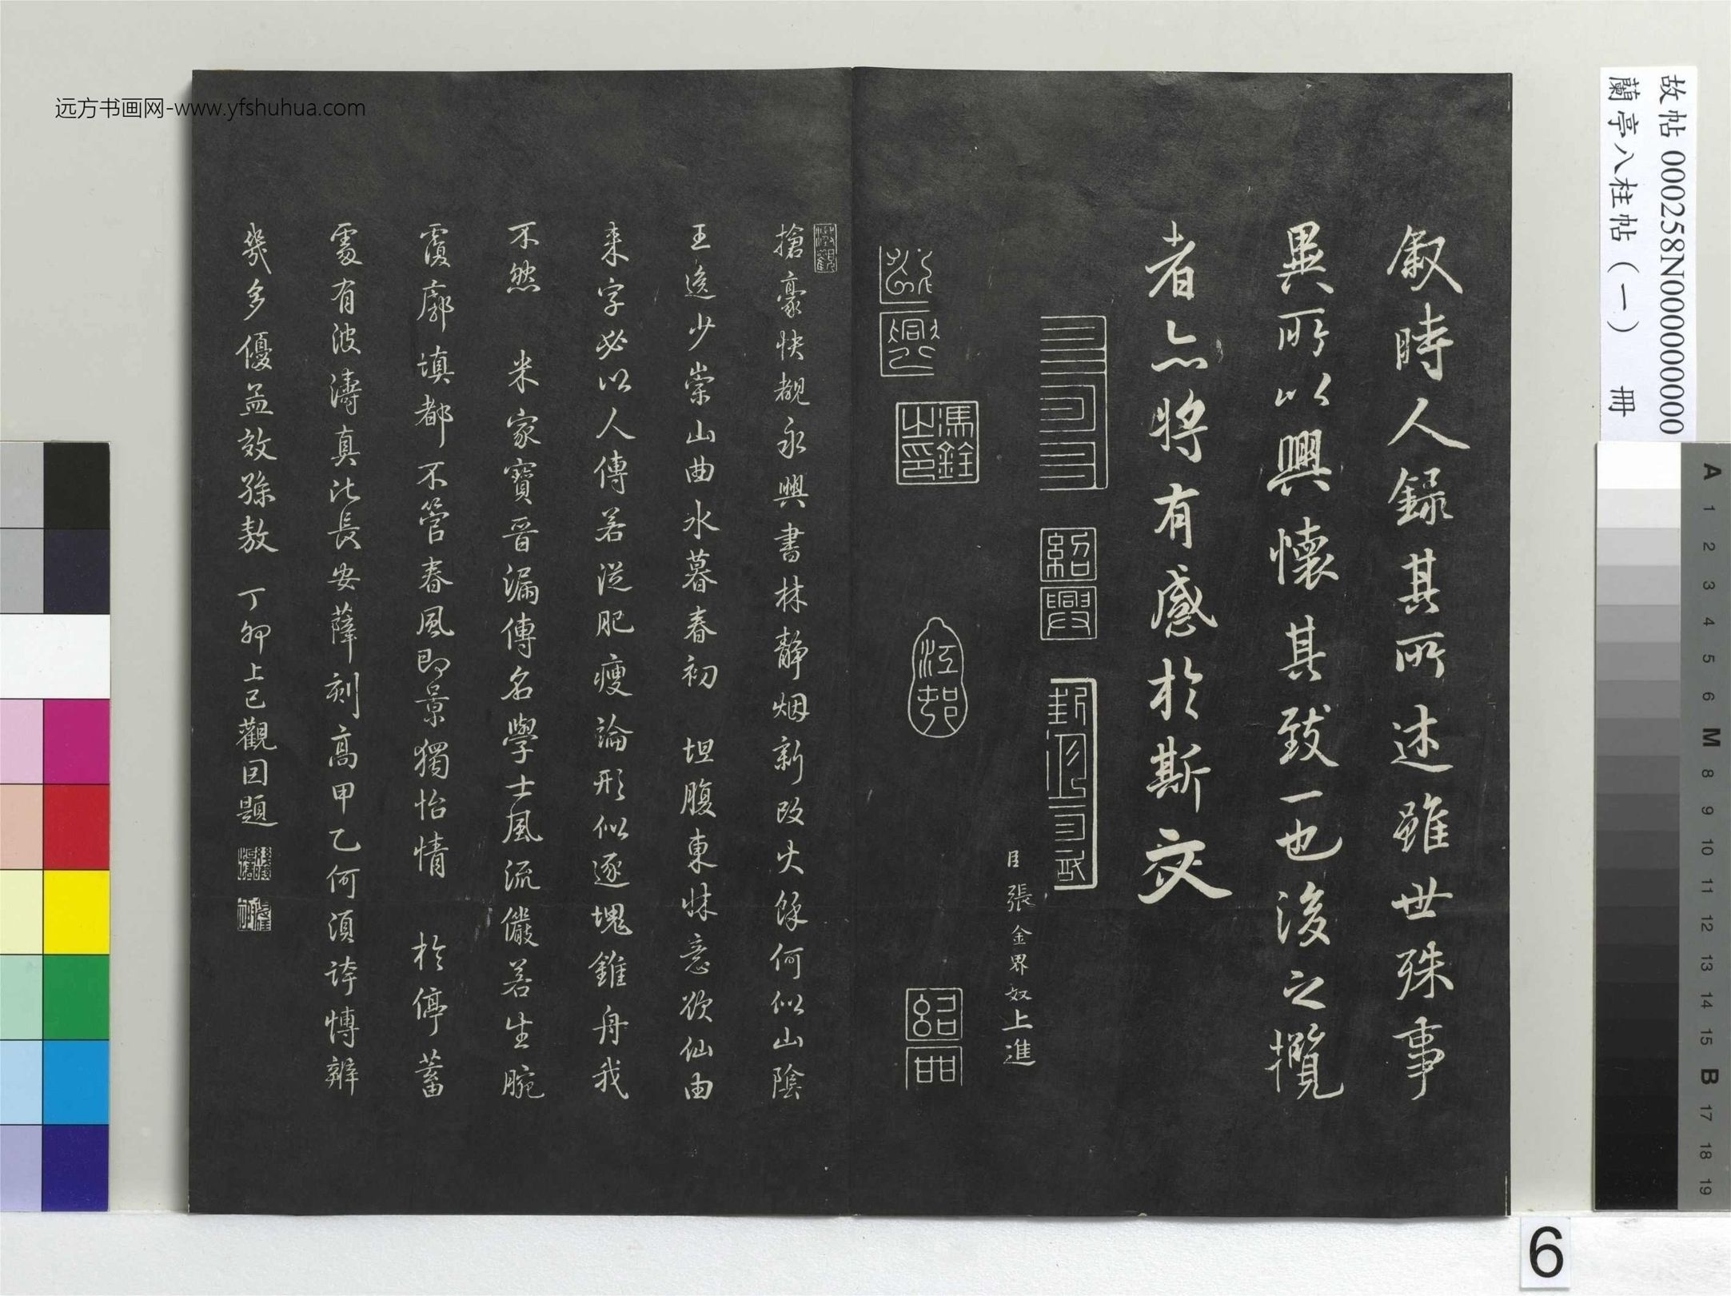 远方书画网-www.yfshuhua.com
故帖 000258N000000000
蘭亭八柱帖（一） 冊
叙時人錄其所述雖世殊事
異所以興懷其致一也後之攬
者亦將有感於斯文
紹興
臣張金界奴上進
馮銓之印
江邨
搶豪快覩永興書林靜烟新改火餘何似山陰
王逸少崇山曲水暮春初 坦腹東牀意欲仙由
来字必以人傳若從肥瘦論形似逐塊錐舟我
不然 米家寶晉漏傳名學士風流儼若生腕
處廓填都不管春風即景獨怡情 於停蓄
處有波濤真比長安薛刻高甲乙何須誇博辯
幾多優孟效孫敖 丁卯上巳觀因題
A 1 2 3 4 5 6 M 8 9 10 11 12 13 14 15 B 17 18 19
6